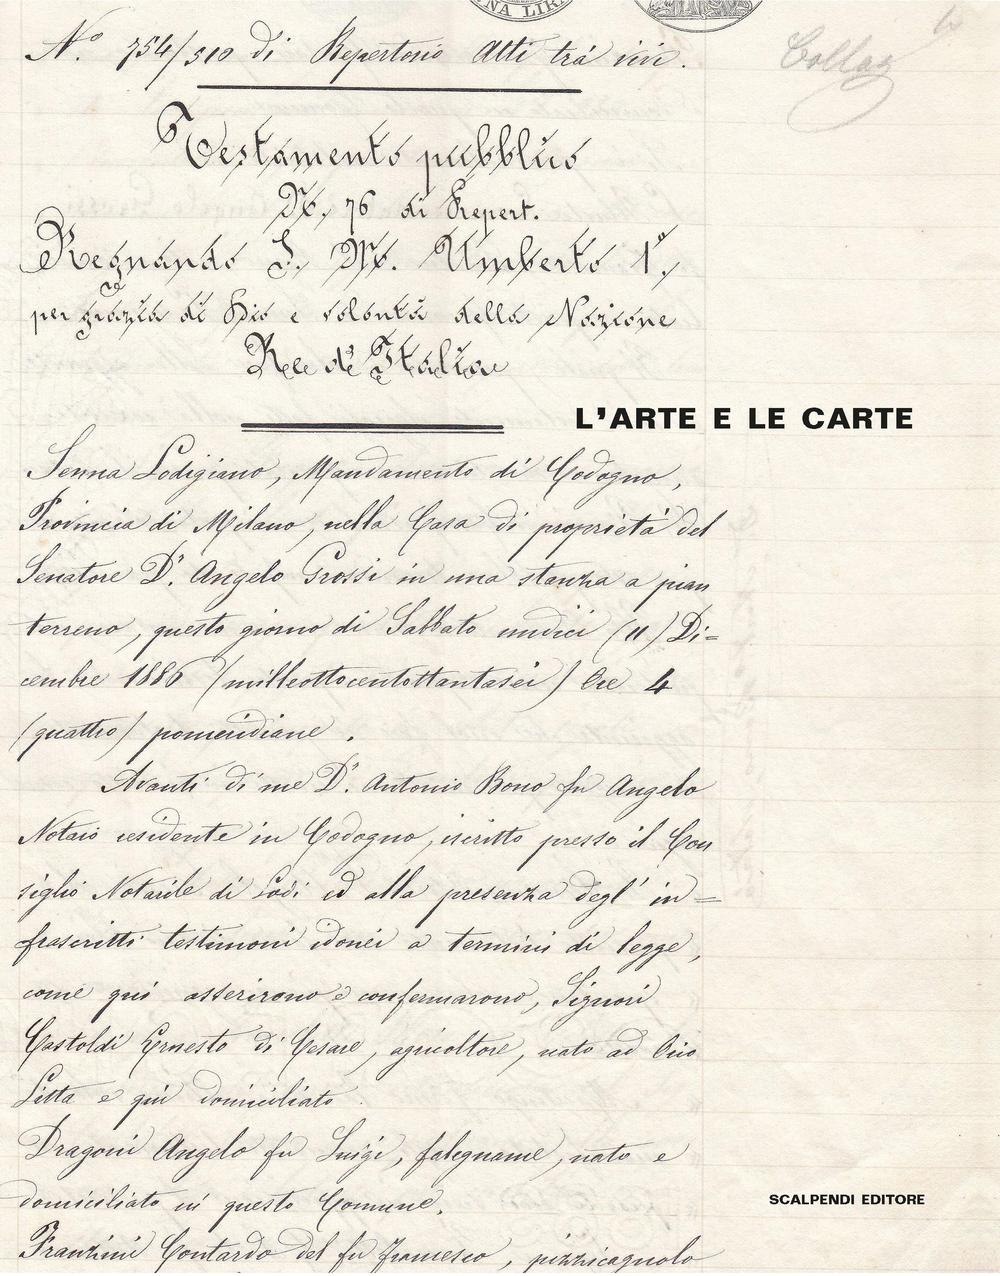 NA LIR
N.º 754/510 di Repertorio Atti trà vivi.
Collaz
Testamento pubblico
N. 76 di Repert.
Regnando S. M. Umberto 1.º
per grazia di Dio e volontà della Nazione
Re d'Italia
L'ARTE E LE CARTE
Senna Lodigiano, Mandamento di Codogno,
Provincia di Milano, nella Casa di proprietà del
Senatore D.r Angelo Grossi in una stanza a pian
terreno, questo giorno di Sabbato undici (11) Di=
cembre 1886 (milleottocentottantasei) Ore 4
(quattro) pomeridiane.
Avanti di me D.r Antonio Bono fu Angelo
Notaio residente in Codogno, iscritto presso il Con
siglio Notarile di Lodi ed alla presenza degl' in=
frascritti testimoni idonei a termini di legge,
come qui asserirono e confermarono, Signori
Castoldi Ernesto di Cesare, agricoltore, nato ad Orio
Litta e qui domiciliato.
Dragoni Angelo fu Luigi, falegname, nato e
domiciliato in questo Comune.
SCALPENDI EDITORE
Franzini Contardo del fu Francesco, pizzicagnolo